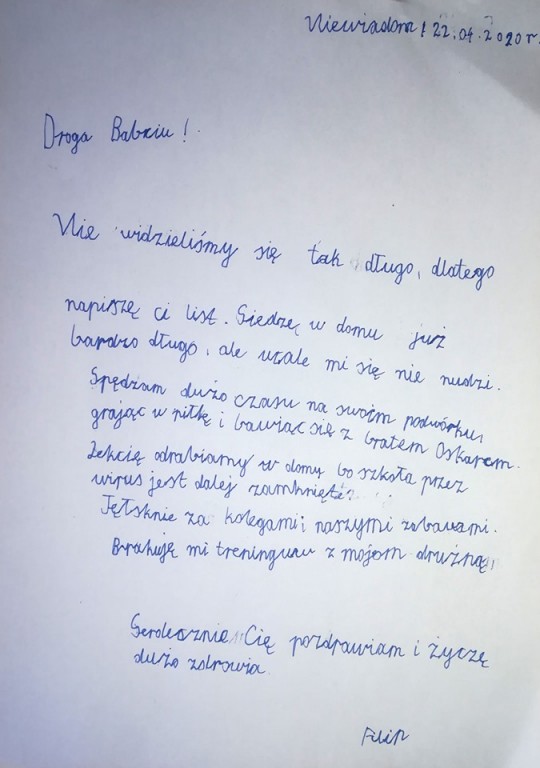 Niewiadom, 22.04.2020 r.
Droga Babciu!
Nie widzieliśmy się tak długo, dlatego
napiszę ci list. Siedzę w domu już
bardzo długo, ale wcale mi się nie nudzi.
Spędzam dużo czasu na swoim podwórku,
grając w piłkę i bawiąc się z bratem Oskarem.
Lekcię odrabiamy w domu bo szkoła przez
wirus jest dalej zamknięte.
Tętsknie za kolegami i naszymi zabawami.
Brakuję mi treninguw z mojom drużną.
Serdecznie Cię pozdrawiam i życzę
dużo zdrowia.
Filip